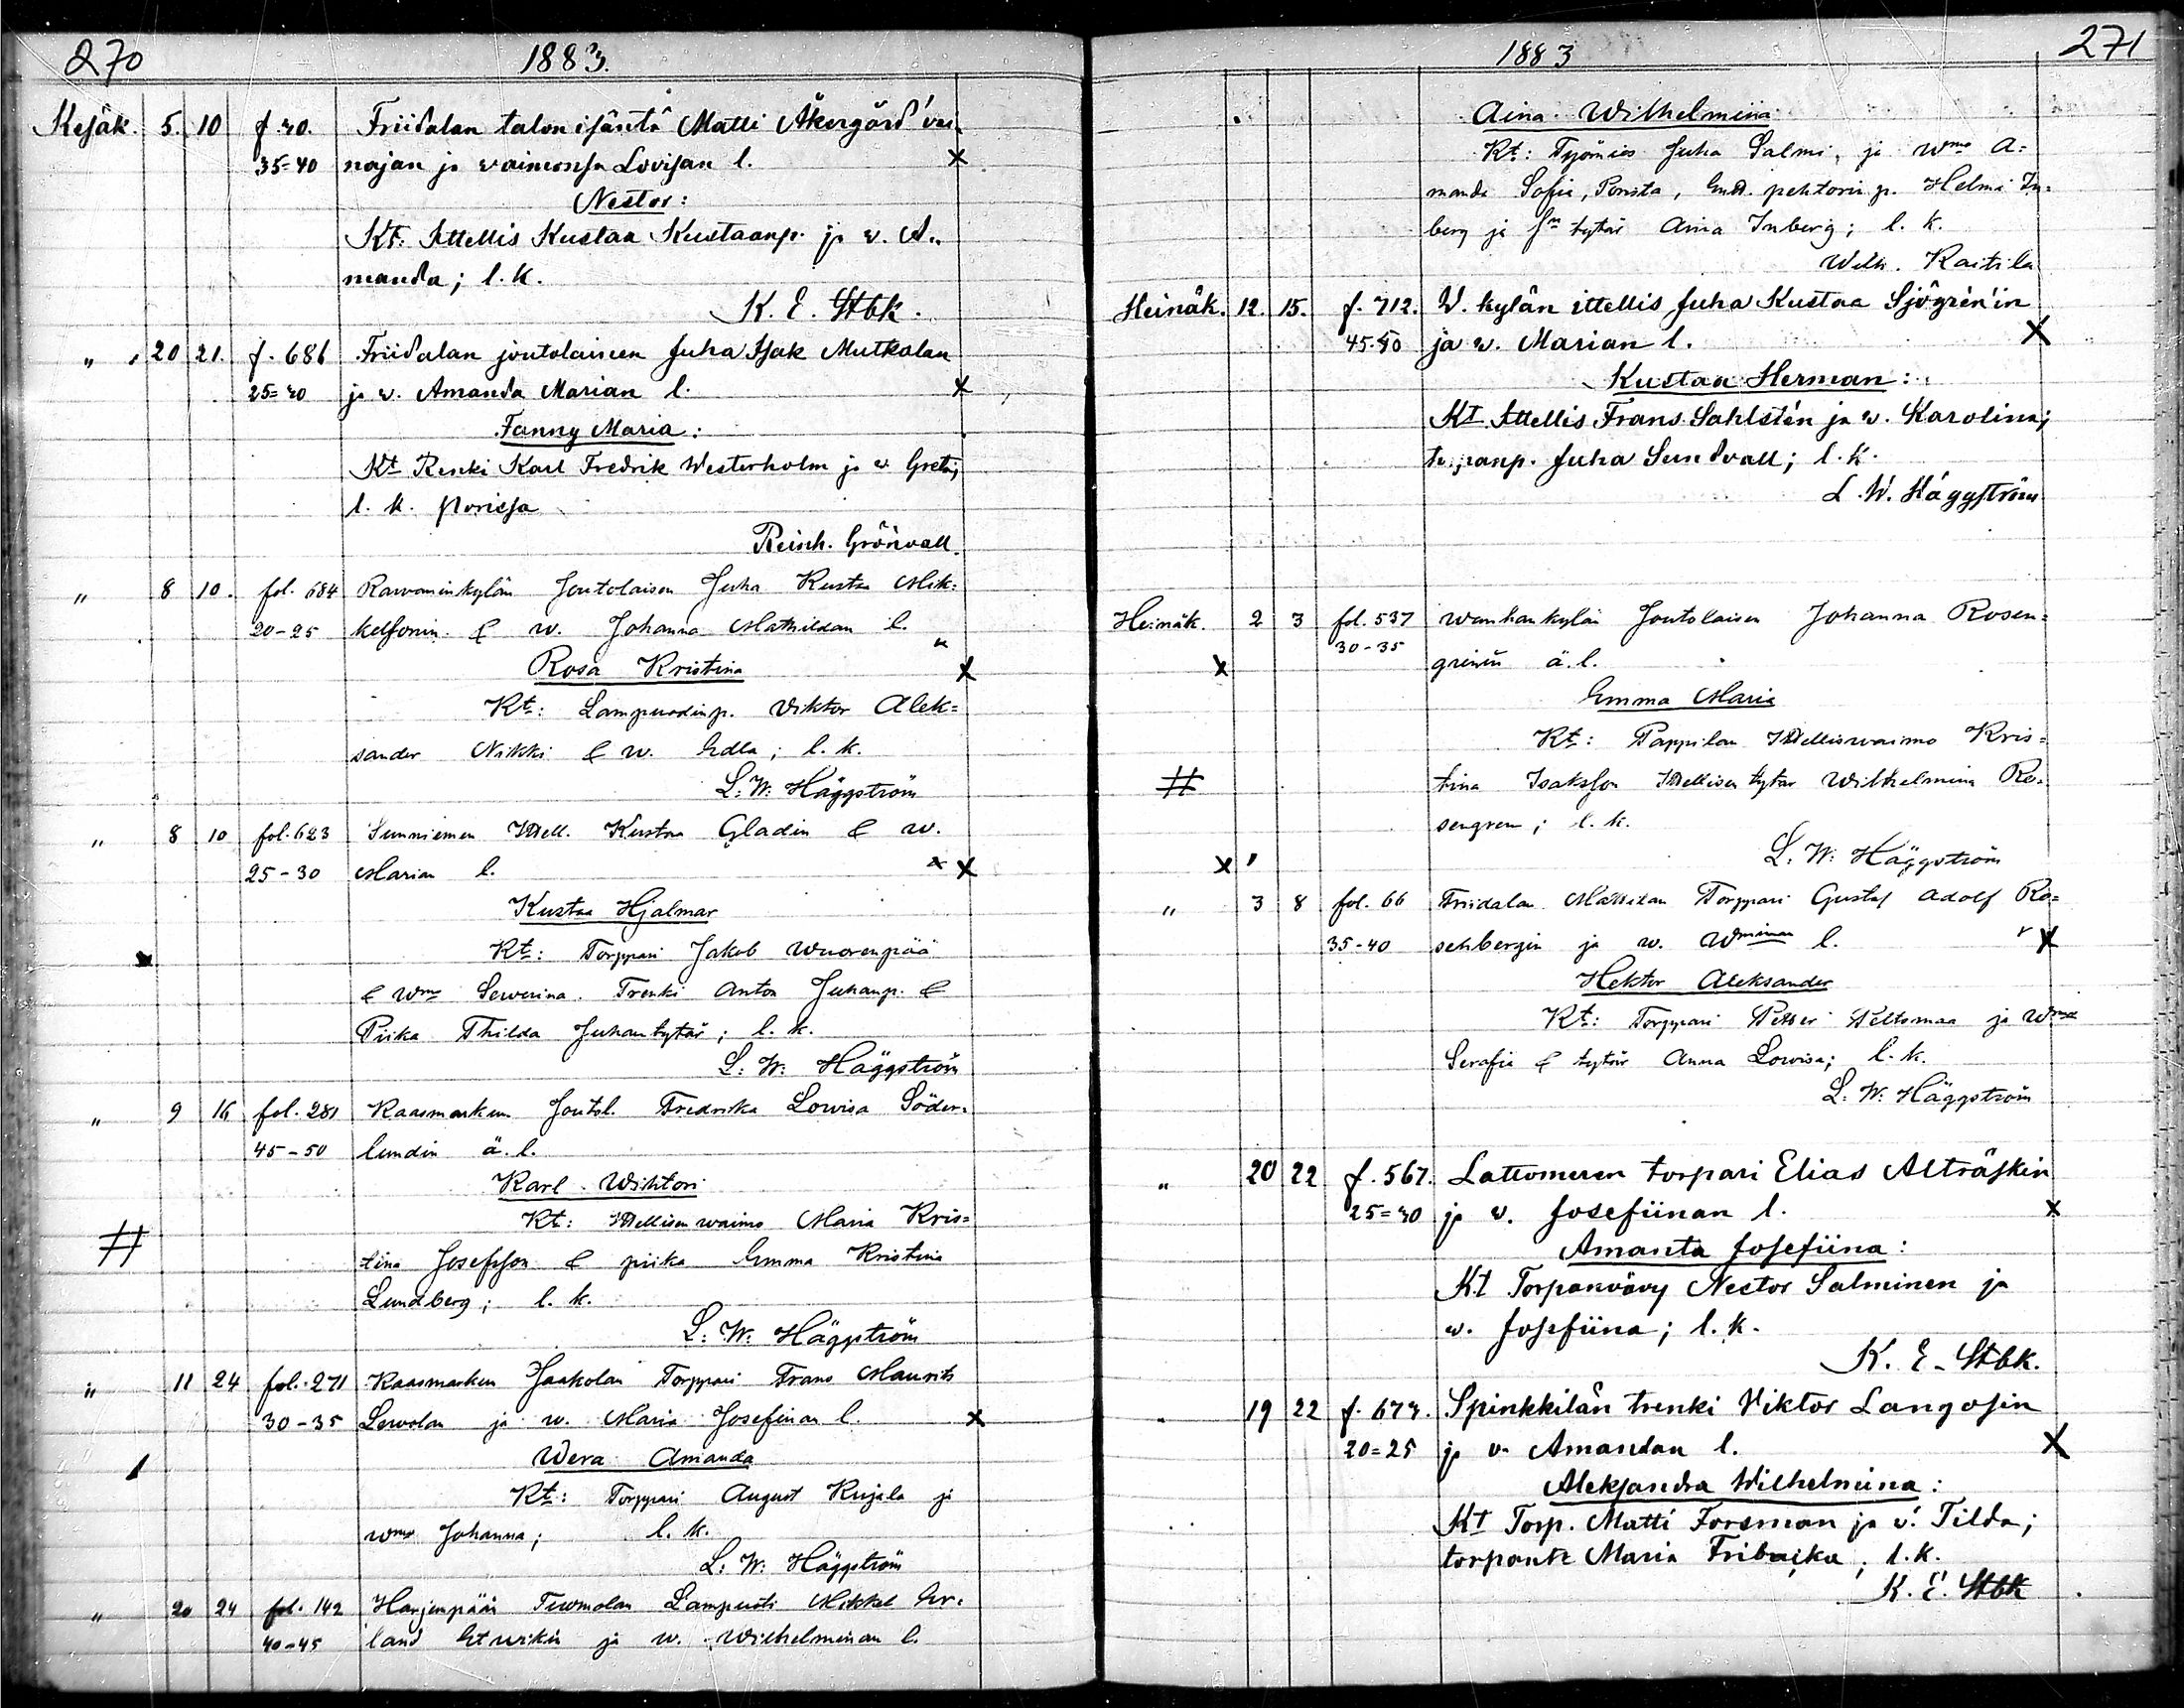 270
1883.
Kesäk. 5. 10 f. 40. Friidalan talon isäntä Matti Åkergård'vai-
35=40 najan ja vaimonsa Lovisan l. X
Nestor:
Kt. Ittellis Kustaa Kustaanp. ja v. A-
manda; l. k.
K. E. Stbk.
" 20 21. f. 686 Friidalan joutolaisen Juha Isak Mutkalan
25=30 ja v. Amanda Marian l. X
Fanny Maria:
Kt Renki Karl Fredrik Westerholm ja v Greta;
l. k. Porissa
Reinh. Grönvall.
" 8 10. fol. 684 Ravvaninkylän Joutolaisen Juha Kustaa Mik=
20-25 kelsonin & w. Johanna Mathildan l.
Rosa Kristina X
Kt: Lampuodinp. Viktor Alek=
sander Nikki & w. Edla; l. k.
L. W. Häggström
" 8 10 fol. 623 Sunniemen Ittell. Kustaa Gladin & w.
25-30 Marian l. X
Kustaa Hjalmar
Kt: Torppari Jakob Wuorenpää
& wmo Severina. Trenki Anton Juhanp. &
Piika Thilda Juhantytär; l. k.
L. W. Häggström
" 9 16 fol. 281 Kaasmarkun Joutol. Fredrika Lowisa Söder=
45-50 lundin ä. l.
Karl Wihtori
Kt: Ittellisen waimo Maria Kris=
# tina Josefsson & piika Emma Kristina
Lundberg; l. k.
L. W. Häggström
" 11 24 fol. 271 Kaasmarkun Jaakolan Torppari Frans Maurits
30-35 Lewolan ja w. Maria Josefinan l. X
Wera Amanda
Kt: Torppari August Kujala ja
wmo Johanna; l. k.
L. W. Häggström
" 20 24 fol. 142 Harjunpään Lampuoti Mikkel Er=
40-45 land ja w. Wilhelminan l.
1883
271
Aina Wilhelmina
Kt: Työmies Juha Salmi, ja wmo A=
manda Sofia, Porista, pehtorin p. Helmi In=
berg ja sn tytär Aina Inberg; l. k.
Wilh. Raitila
Heinäk. 12. 15. f. 712. W. kylän ittellis Juha Kustaa Sjögrén'in
45-50 ja w. Marian l. X
Kustaa Herman:
Kt Ittellis Frans Sahlstén ja w. Karolina;
Juha Sundvall; l. k.
L. W. Häggström
Heinäk. 2 3 fol. 537 Wanhankylän Joutolaisen Johanna Rosen=
30-35
X grenin ä. l.
Emma Maria
Kt: Pappilan Ittellisvaimo Kris=
# tina Isaksson Ittellisen tytär Wilhelmina Ro=
sengren; l. k.
X L. W. Häggström
" 3 8 fol. 66 Friidalan Mattilan Torppari Gustaf Adolf Ro=
35-40 senbergin ja w. Wminan l. X
Hektor Aleksander
Kt: Torppari Petter Peltomaa ja wmo
Serafia & tytär Anna Lowisa; l. k.
L. W. Häggström
" 20 22 f. 567. Lattomeren torpari Elias Alträskin
25=30 ja v. Josefiinan l. X
Amanta Josefiina:
Kt Torpanvävy Nestor Salminen ja
w. Josefiina; l. k.
K. E. Stbk.
" 19 22 f. 673. Spinkkilän trenki Viktor Langosin
20=25 ja v. Amandan l. X
Aleksandra Wilhelmiina:
Kt Torp. Matti Forsman ja v. Tilda;
Maria l. k.
K. E. Stbk